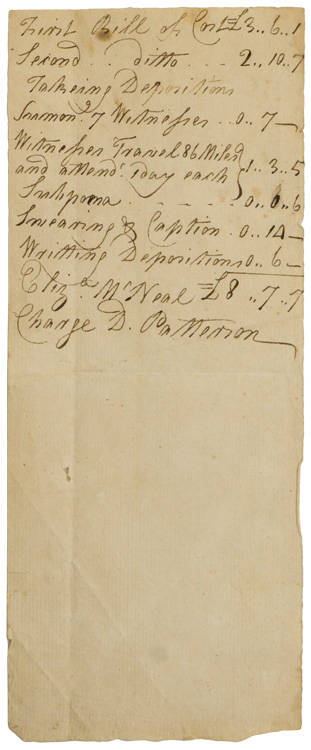 First Bill of Cost £3..6..1
Second .. ditto ... 2..10..7
Takeing Depositions
Sumon.g 7 Witnesses .. 0..7—
Witnesses Travel 86 Miles
and attend.e 1 day each } 1..3..5
Subpoena - - - - 0..0..6
Swearing & Caption . 0..14—
Writting Depositions 0..6—
Eliz.a McNeal £8..7..7
Charge D. Patterson